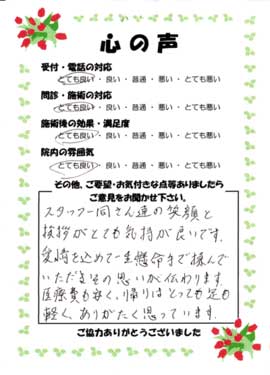 心の声
受付・電話の対応
とても良い・良い・普通・悪い・とても悪い
問診・施術の対応
とても良い・良い・普通・悪い・とても悪い
施術後の効果・満足度
とても良い・良い・普通・悪い・とても悪い
院内の雰囲気
とても良い・良い・普通・悪い・とても悪い
その他、ご要望・お気付きな点等ありましたら
ご意見をお聞かせ下さい。
スタッフ一同さん達の笑顔と
挨拶がとても気持が良いです。
気持を込めて一生懸命に揉んで
いただきその思いが伝わります。
医療費も安く、帰りはとっても足も
軽く、ありがたく思っています。
ご協力ありがとうございました